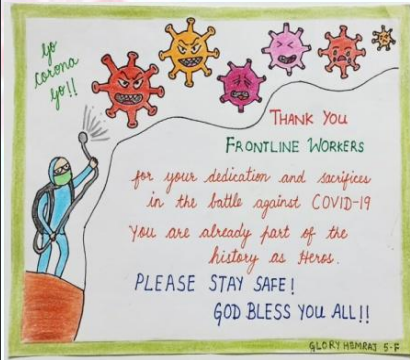 Go
corona
Go!!
THANK YOU
FRONTLINE WORKERS
for your dedication and sacrifices
in the battle against COVID-19
You are already part of the
history as Heros.
PLEASE STAY SAFE!
GOD BLESS YOU ALL!!
GLORY HEMRAJ 5-F